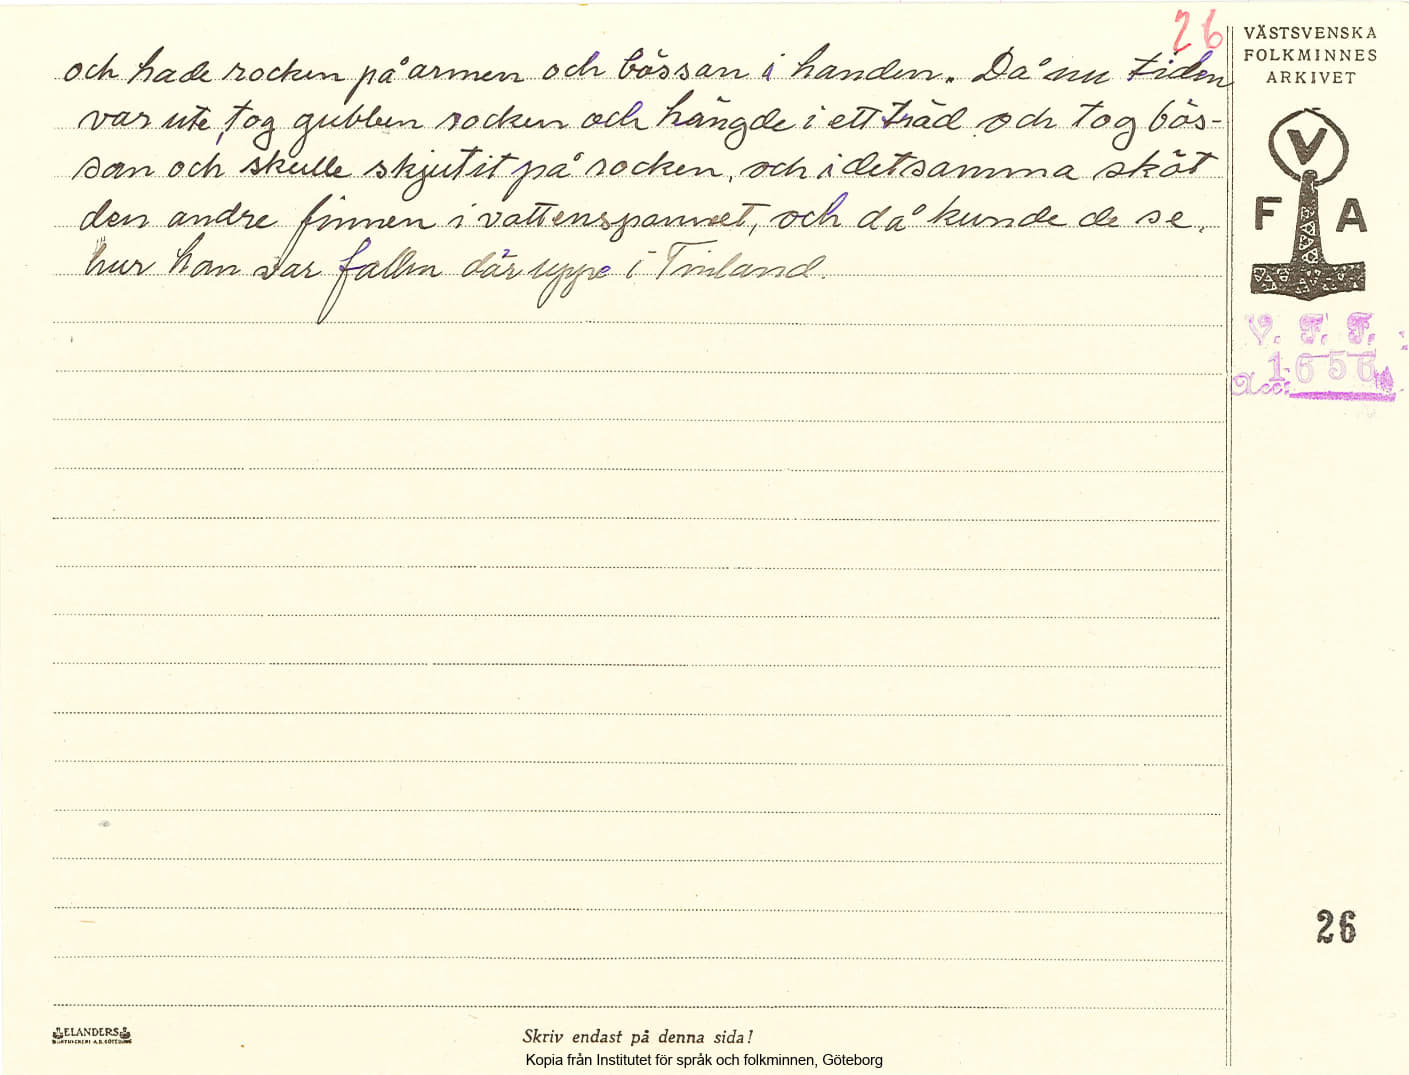 26
och hade rocken på armen och bössan i handen. Då nu tiden
var ute, tog gubben rocken och hängde i ett träd och tog bös-
san och skulle skjutit på rocken, och i detsamma sköt
den andre finnen i vattenspannet, och då kunde de se,
hur han var fallen där uppe i Finland.
VÄSTSVENSKA
FOLKMINNES
ARKIVET
V
F A
V. F. F.
Acc: 1656
26
ELANDERS
BOKTRYCKERI A.B. GÖTEBORG
Skriv endast på denna sida!
Kopia från Institutet för språk och folkminnen, Göteborg